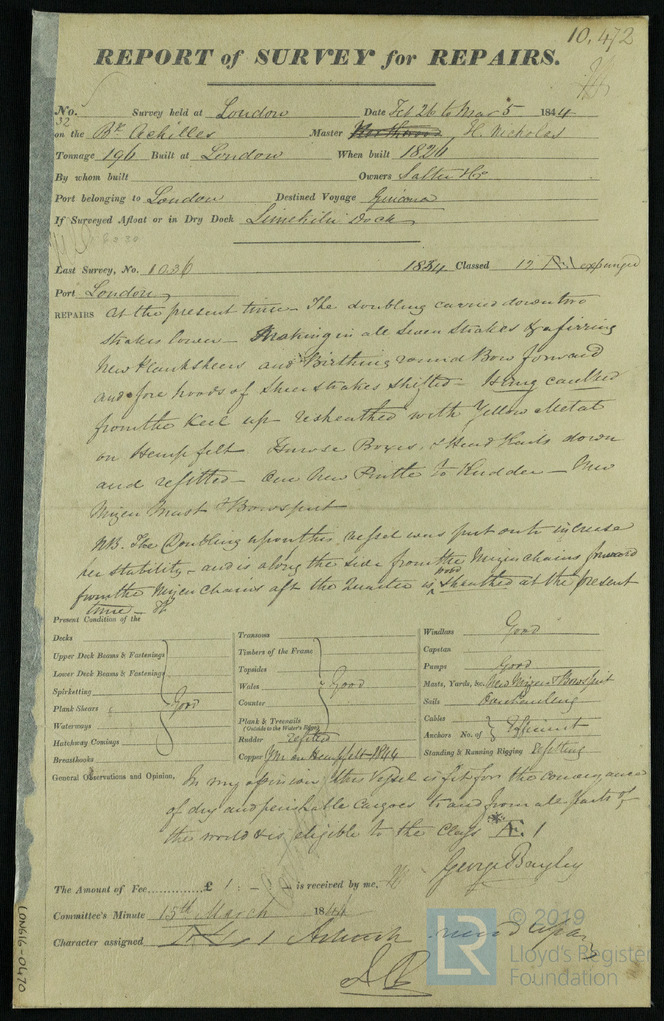 10,472
REPORT of SURVEY for REPAIRS.
No. 32 Survey held at London Date Feb 26 to Mar 5 1844
on the Bk Achilles Master H. Nicholas
Tonnage 196 Built at London When built 1826
By whom built Owners Salter & Co
Port belonging to London Destined Voyage
If Surveyed Afloat or in Dry Dock Limekiln Dock
Last Survey, No. 1036 1834 Classed 12 A1 expunged
Port London
REPAIRS At the present time The doubling carried down two
strakes lower making in all Seven Strakes & a firring
New Planksheers and Birthing round Bow forward
and fore hoods of Sheerstrakes shifted being caulked
from the Keel up resheathed with Yellow Metal
on Hemp felt Hawse Boxes & Head Rails down
and refitted One New Pintle to Rudder New
Mizen Mast & Bowsprit
NB. The Doubling upon this vessel was put on to increase
her stability and is along the side from the Mizen chains forward
from the Mizen Chains aft the Quarter is wood sheathed at the present
time
Present Condition of the
Decks
Upper Deck Beams & Fastenings
Lower Deck Beams & Fastenings
Spirketting
Plank Shears Good
Waterways
Hatchway Comings
Breasthooks
Transoms
Timbers of the Frame
Topsides
Wales Good
Counter
Plank & Treenails
(Outside to the Water's Edge)
Rudder refitted
Copper YM on Hemp felt 1844
Windlass Good
Capstan
Pumps Good
Masts, Yards, &c. New Mizen & Bowsprit
Sails Overhauling
Cables
Anchors No. of Efficient
Standing & Running Rigging Refitting
General Observations and Opinion, In my opinion this Vessel is fit for the conveyance
of dry and perishable Cargoes to and from all parts of
the world & is eligible to the Class *Æ 1
George Bayley
The Amount of Fee......... £ 1 : - - is received by me,
Committee's Minute 15th March 1844
Character assigned
LON616-0470
LR
© 2019
Lloyd's Register
Foundation